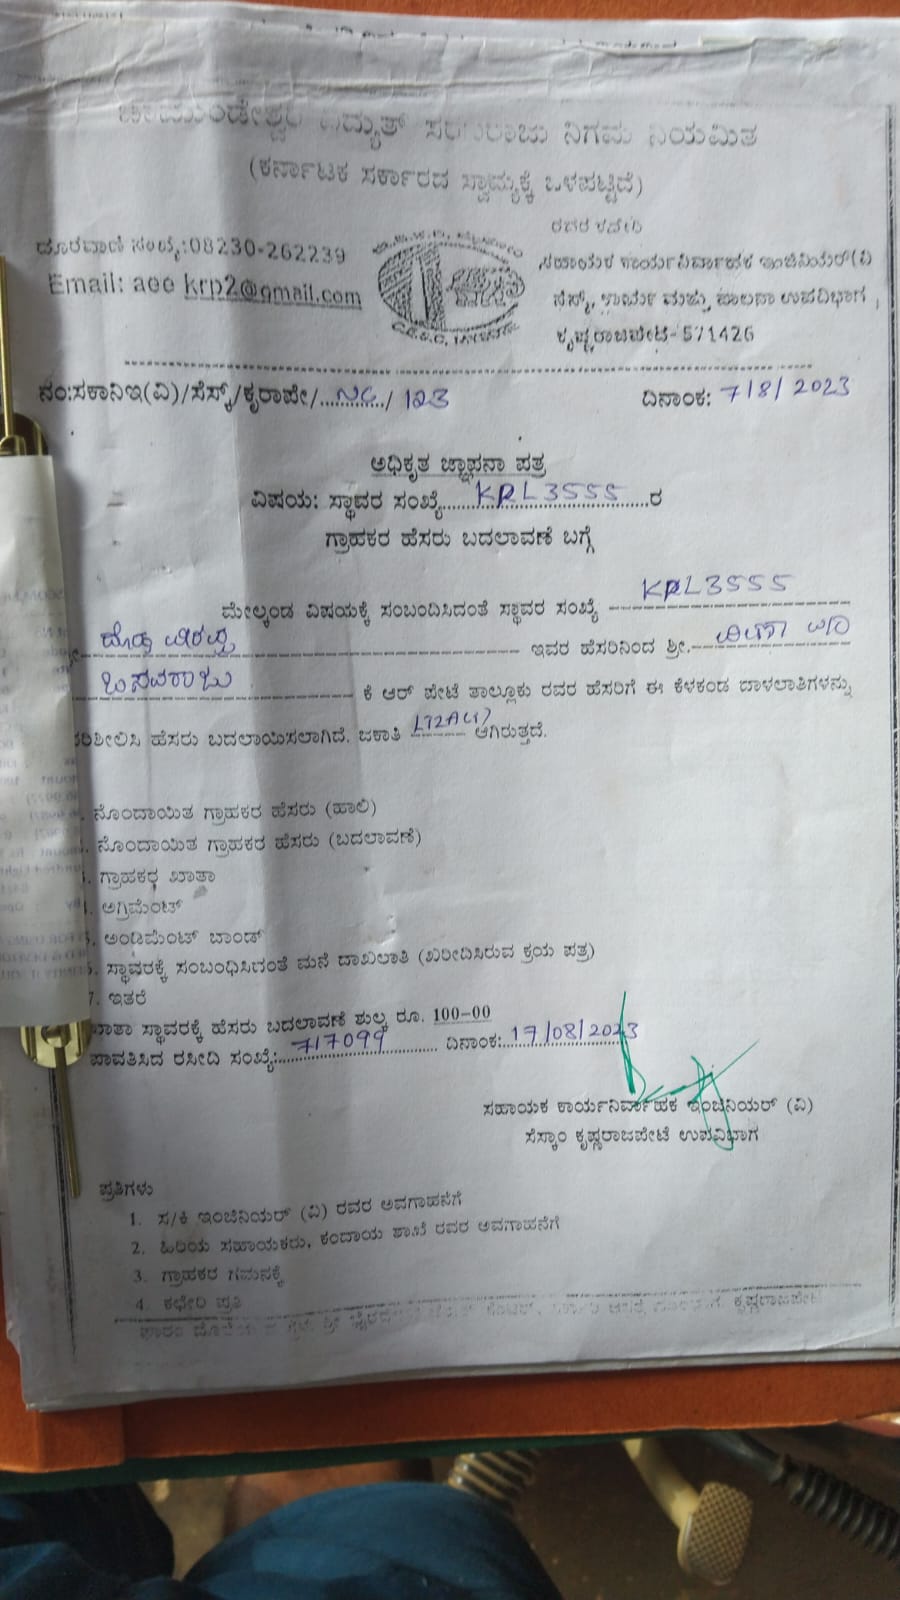 ಚಾಮುಂಡೇಶ್ವರಿ ವಿದ್ಯುತ್ ಸರಬರಾಜು ನಿಗಮ ನಿಯಮಿತ
(ಕರ್ನಾಟಕ ಸರ್ಕಾರದ ಸ್ವಾಮ್ಯಕ್ಕೆ ಒಳಪಟ್ಟಿದೆ)
ದೂರವಾಣಿ ಸಂಖ್ಯೆ:08230-262239
Email: aee krp2@gmail.com
ರವರ ಕಛೇರಿ
ಸಹಾಯಕ ಕಾರ್ಯನಿರ್ವಾಹಕ ಇಂಜಿನಿಯರ್(ವಿ
ಸೆಸ್ಕ್, ಕಾರ್ಯ ಮತ್ತು ಪಾಲನಾ ಉಪವಿಭಾಗ,
ಕೃಷ್ಣರಾಜಪೇಟೆ-571426
ನಂ:ಸಕಾನಿಇ(ವಿ)/ಸೆಸ್ಕ್/ಕೃರಾಪೇ/............/ 123
ದಿನಾಂಕ: 7/8/2023
ಅಧಿಕೃತ ಜ್ಞಾಪನಾ ಪತ್ರ
ವಿಷಯ: ಸ್ಥಾವರ ಸಂಖ್ಯೆ.....KRL3555.....ರ
ಗ್ರಾಹಕರ ಹೆಸರು ಬದಲಾವಣೆ ಬಗ್ಗೆ
ಮೇಲ್ಕಂಡ ವಿಷಯಕ್ಕೆ ಸಂಬಂದಿಸಿದಂತೆ ಸ್ಥಾವರ ಸಂಖ್ಯೆ KRL3555
ಇವರ ಹೆಸರಿನಿಂದ ಶ್ರೀ.
ಬಸವರಾಜು ಕೆ ಆರ್ ಪೇಟೆ ತಾಲ್ಲೂಕು ರವರ ಹೆಸರಿಗೆ ಈ ಕೆಳಕಂಡ ದಾಳಲಾತಿಗಳನ್ನು
ಪರಿಶೀಲಿಸಿ ಹೆಸರು ಬದಲಾಯಿಸಲಾಗಿದೆ. ಜಕಾತಿ ಆಗಿರುತ್ತದೆ.
ನೊಂದಾಯಿತ ಗ್ರಾಹಕರ ಹೆಸರು (ಹಾಲಿ)
ನೊಂದಾಯಿತ ಗ್ರಾಹಕರ ಹೆಸರು (ಬದಲಾವಣೆ)
ಗ್ರಾಹಕರ ಖಾತಾ
ಅಗ್ರಿಮೆಂಟ್
ಅಂಡಿಮೆಂಟ್ ಬಾಂಡ್
ಸ್ಥಾವರಕ್ಕೆ ಸಂಬಂಧಿಸಿದಂತೆ ಮನೆ ದಾಖಲಾತಿ (ಖರೀದಿಸಿರುವ ಕ್ರಯ ಪತ್ರ)
7. ಇತರೆ
ಖಾತಾ ಸ್ಥಾವರಕ್ಕೆ ಹೆಸರು ಬದಲಾವಣೆ ಶುಲ್ಕ ರೂ. 100-00
ಪಾವತಿಸಿದ ರಸೀದಿ ಸಂಖ್ಯೆ:...717099... ದಿನಾಂಕ:.17/08/2023
ಸಹಾಯಕ ಕಾರ್ಯನಿರ್ವಾಹಕ ಇಂಜಿನಿಯರ್ (ವಿ)
ಸೆಸ್ಕಾಂ ಕೃಷ್ಣರಾಜಪೇಟೆ ಉಪವಿಭಾಗ
ಪ್ರತಿಗಳು
1. ಸ/ಕಿ ಇಂಜಿನಿಯರ್ (ವಿ) ರವರ ಅವಗಾಹನೆಗೆ
2. ಹಿರಿಯ ಸಹಾಯಕರು, ಕಂದಾಯ ಶಾಖೆ ರವರ ಅವಗಾಹನೆಗೆ
3. ಗ್ರಾಹಕರ ಗಮನಕ್ಕೆ
4. ಕಛೇರಿ ಪ್ರತಿ
ಕೃಷ್ಣರಾಜಪೇಟೆ